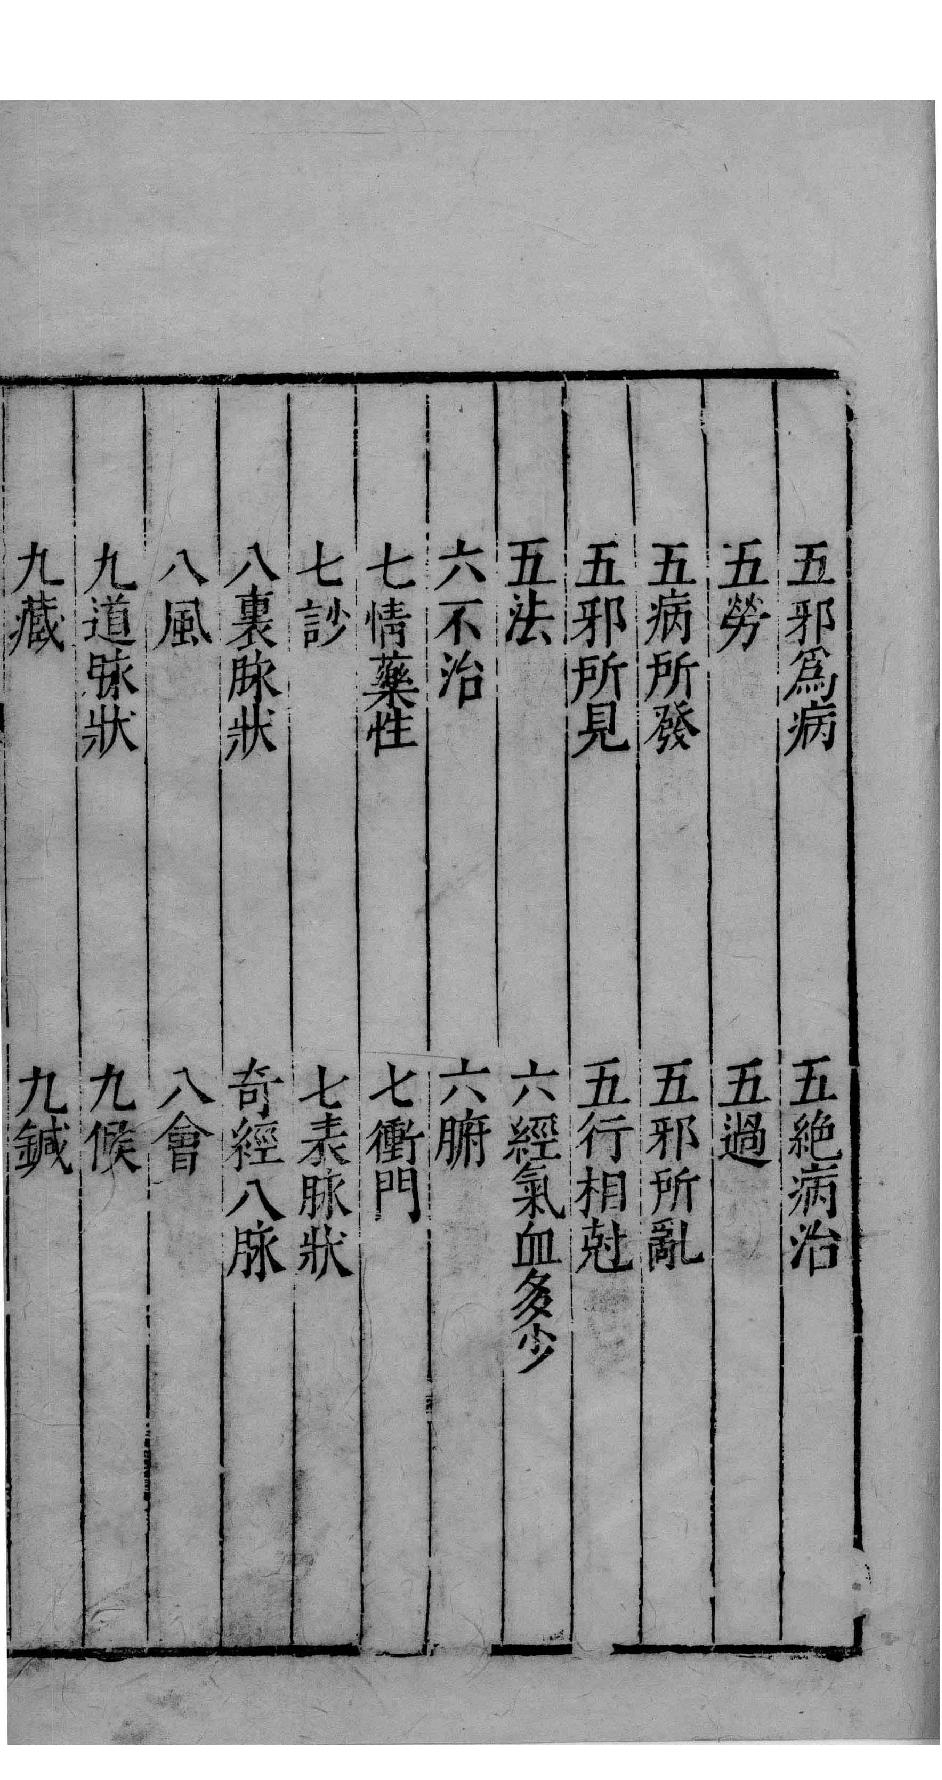 五邪爲病　五絶病治
五勞　五過
五病所發　五邪所亂
五邪所見　五行相尅
五法　六經氣血多少
六不治　六腑
七情藥性　七衝門
七診　七表脉狀
八裏脉狀　奇經八脉
八風　八會
九道脉狀　九候
九藏　九鍼